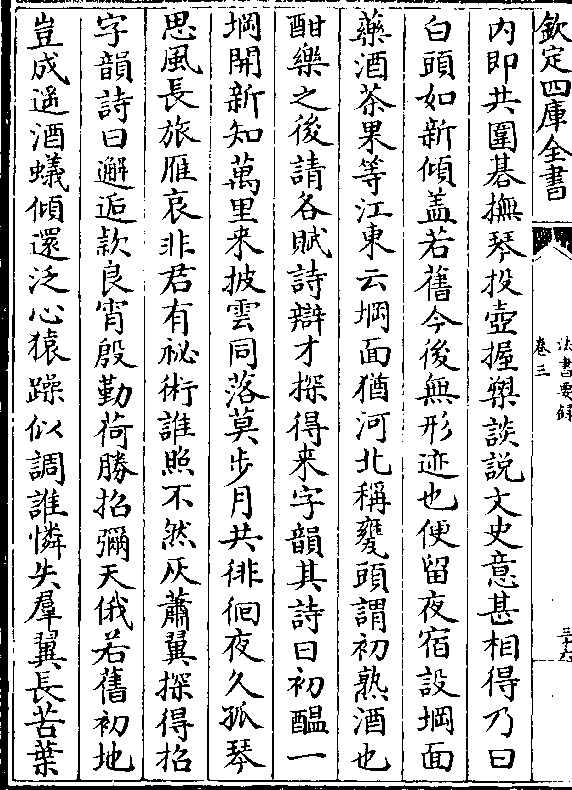 欽定四庫全書
法書要録
卷三
内即共圍碁撫琴投壺握槊談説文史意甚相得乃曰
白頭如新傾盖若舊今後無形迹也便留夜宿設堈面
藥酒茶果等江東云堈面猶河北稱甕頭謂初熟酒也
酣樂之後請各賦詩辯才探得来字韻其詩曰初醖一
堈開新知萬里来披雲同落莫步月共徘徊夜久孤琴
思風長旅雁哀非君有祕術誰照不然灰蕭翼探得招
字韻詩曰邂逅款良宵殷勤荷勝招彌天俄若舊初地
豈成遥酒蟻傾還泛心猿躁似調誰憐失羣翼長苦葉